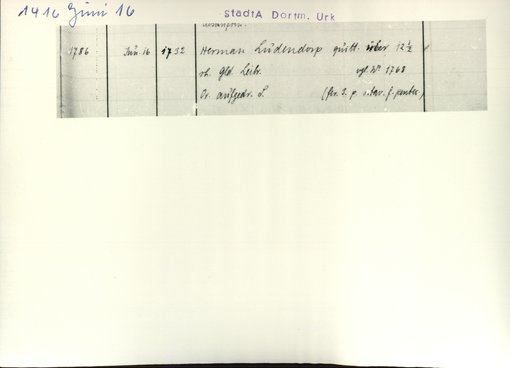 1416 Juni 16
StadtA Dortm. Urk
1786 Jun. 16 1752 Herman Ludendorp quitt. über 12 1/2
rh. Gld. Leibr. vgl. Nr 1768
Or. aufgedr. S.